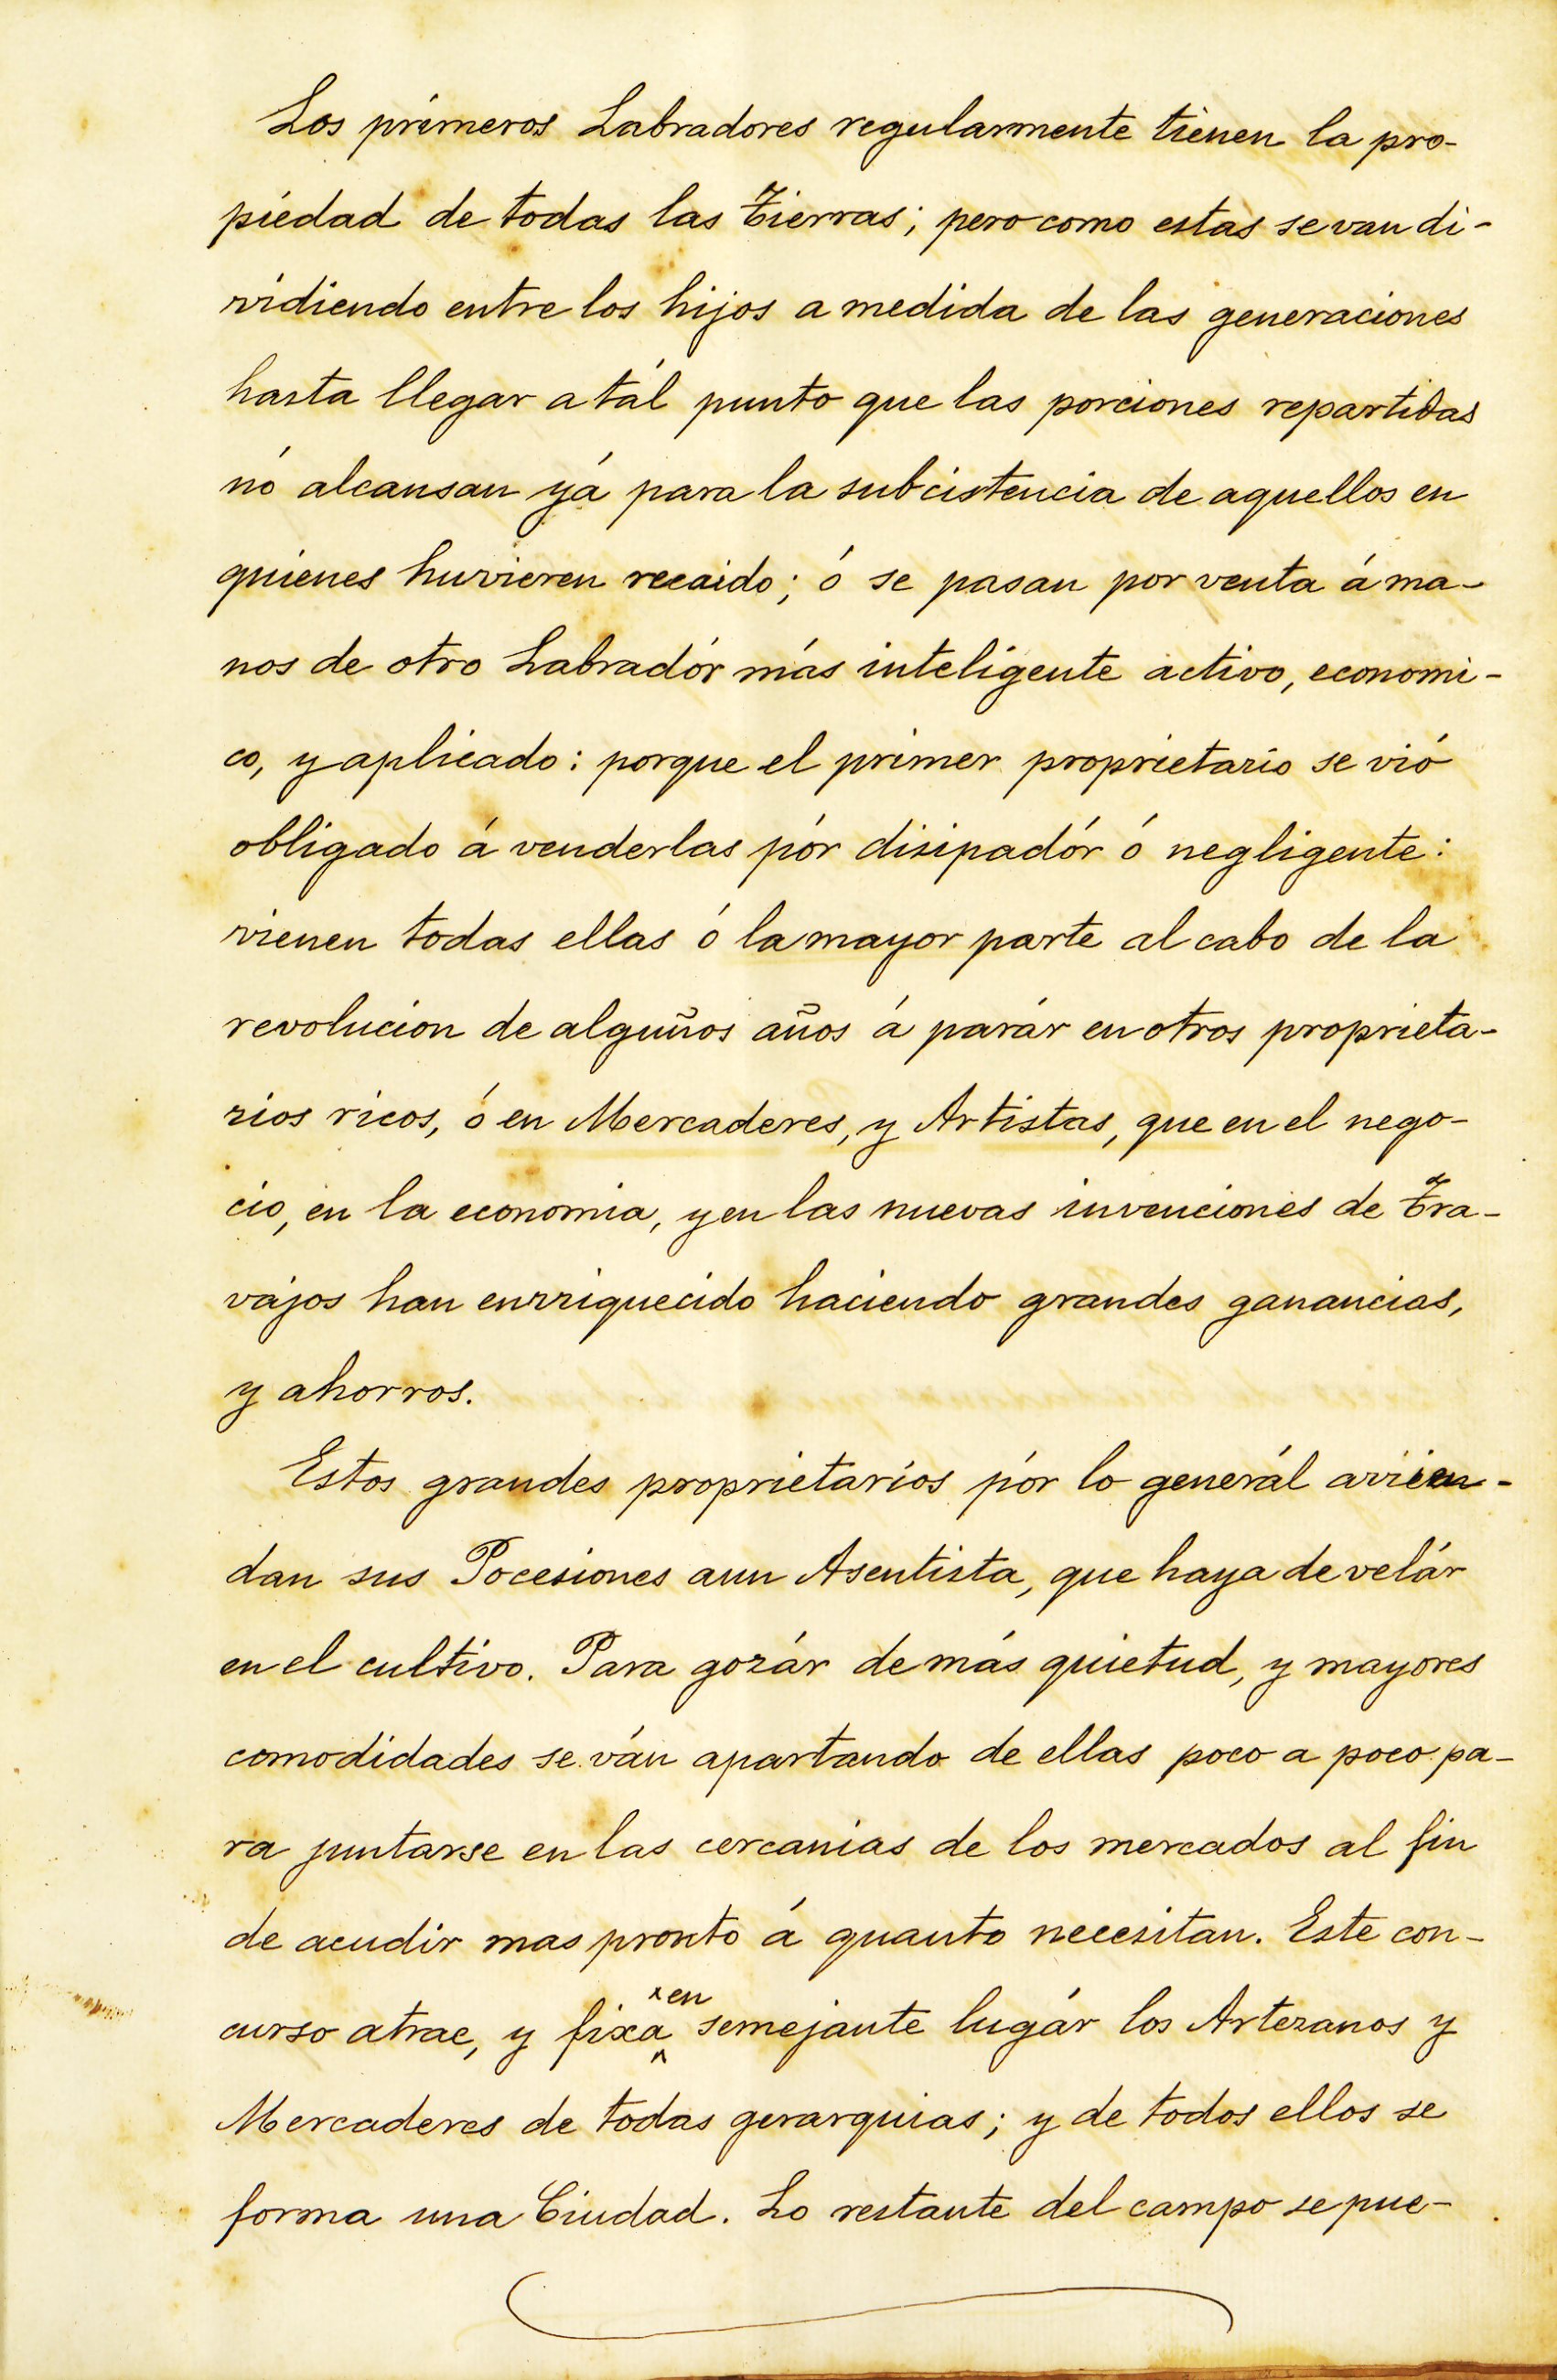 Los primeros Labradores regularmente tienen la pro-
piedad de todas las Tierras; pero como estas se van di-
vidiendo entre los hijos a medida de las generaciones
hasta llegar a tál punto que las porciones repartidas
nó alcansan yá para la subcistencia de aquellos en
quienes huvieren recaido; ó se pasan por venta á ma-
nos de otro Labradór más inteligente activo, economi-
co, y aplicado: porque el primer proprietario se vió
obligado á venderlas pór disipadór ó negligente:
vienen todas ellas ó la mayor parte al cabo de la
revolucion de alguños años á parár en otros proprieta-
rios ricos, ó en Mercaderes, y Artistas, que en el nego-
cio, en la economia, y en las nuevas invenciones de Tra-
vajos han enrriquecido haciendo grandes ganancias,
y ahorros.
Estos grandes proprietarios pór lo generál arrien-
dan sus Pocesiones aun Asentista, que haya de velár
en el cultivo. Para gozár de más quietud, y mayores
comodidades se ván apartando de ellas poco a poco pa-
ra juntarse en las cercanias de los mercados al fin
de acudir mas pronto á quanto necesitan. Este con-
curso atrae, y fixa en semejante lugár los Artezanos y
Mercaderes de todas gerarquias; y de todos ellos se
forma una Ciudad. Lo restante del campo se pue-